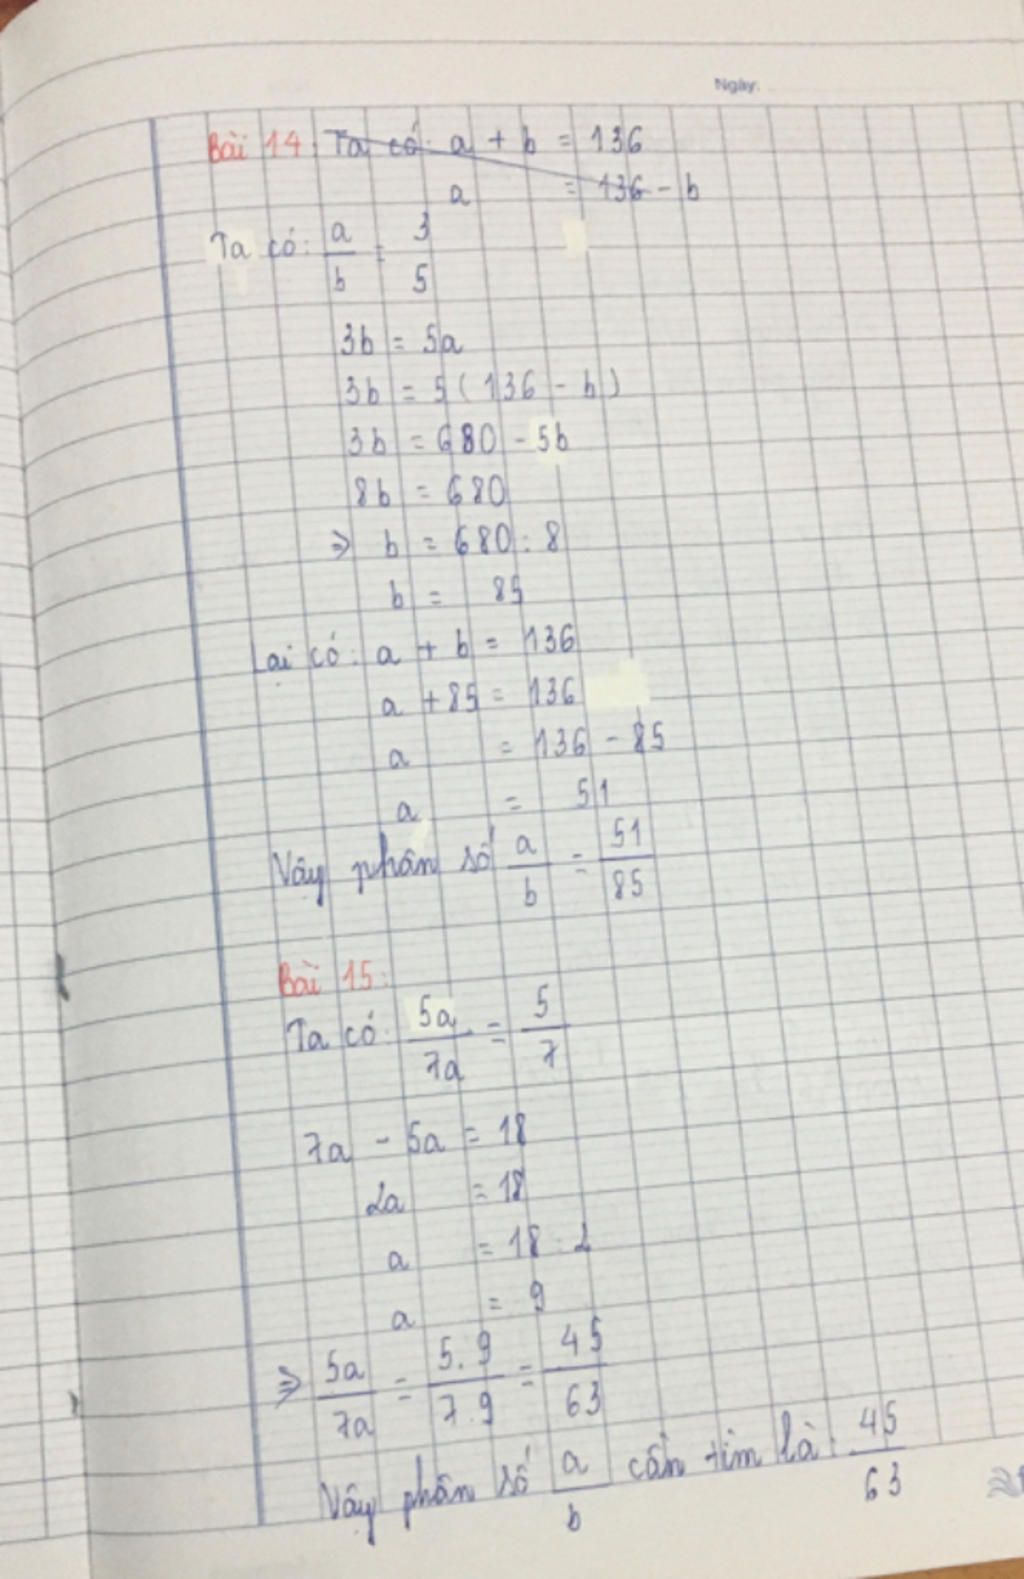 Ngày:
Bài 14 Ta có: a + b = 136
a = 136 - b
Ta có: a/b = 3/5
3b = 5a
3b = 5(136 - b)
3b = 680 - 5b
8b = 680
⇒ b = 680 : 8
b = 85
Lại có: a + b = 136
a + 85 = 136
a = 136 - 85
a = 51
Vậy phân số a/b = 51/85
Bài 15:
Ta có: 5a/7a = 5/7
7a - 5a = 18
2a = 18
a = 18 : 2
a = 9
⇒ 5a/7a = 5.9/7.9 = 45/63
Vậy phân số a/b cần tìm là: 45/63